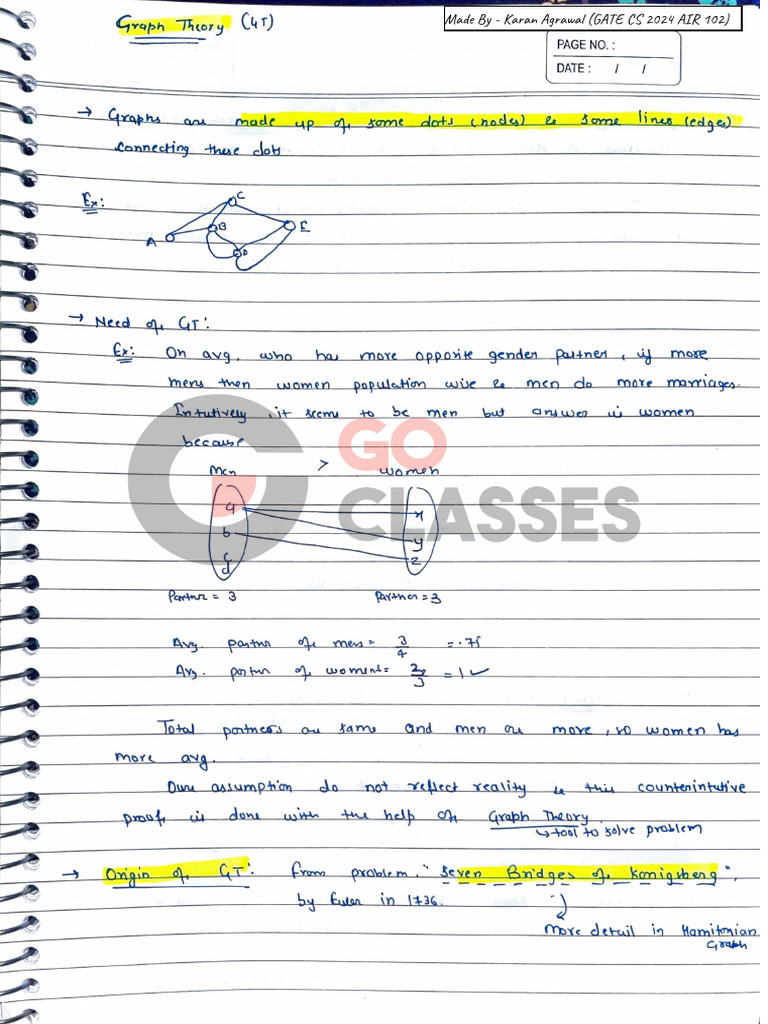 Made By - Karan Agrawal (GATE CS 2024 AIR 102)
Graph Theory (GT)
PAGE NO. :
DATE : / /
→ Graphs are made up of some dots (nodes) & some lines (edges)
connecting these dots
Ex:
C
B
E
A
D
→ Need of GT:
Ex: On avg. who has more opposite gender partner, if more
mens then women population wise & men do more marriages.
Intutively, it seems to be men but answer is women
because
GO
CLASSES
Men > women
a x
b y
c z
d
Partner = 3 Partner = 3
Avg. partner of mens = 3/4 = .75
Avg. partner of womens = 3/3 = 1 ✓
Total partners are same and men are more, so women has
more avg.
Our assumption do not reflect reality & this counterintutive
proof is done with the help of Graph Theory.
↳ tool to solve problem
→ Origin of GT: From problem, "Seven Bridges of Konigsberg",
by Euler in 1736.
More detail in Hamitonian
Graph